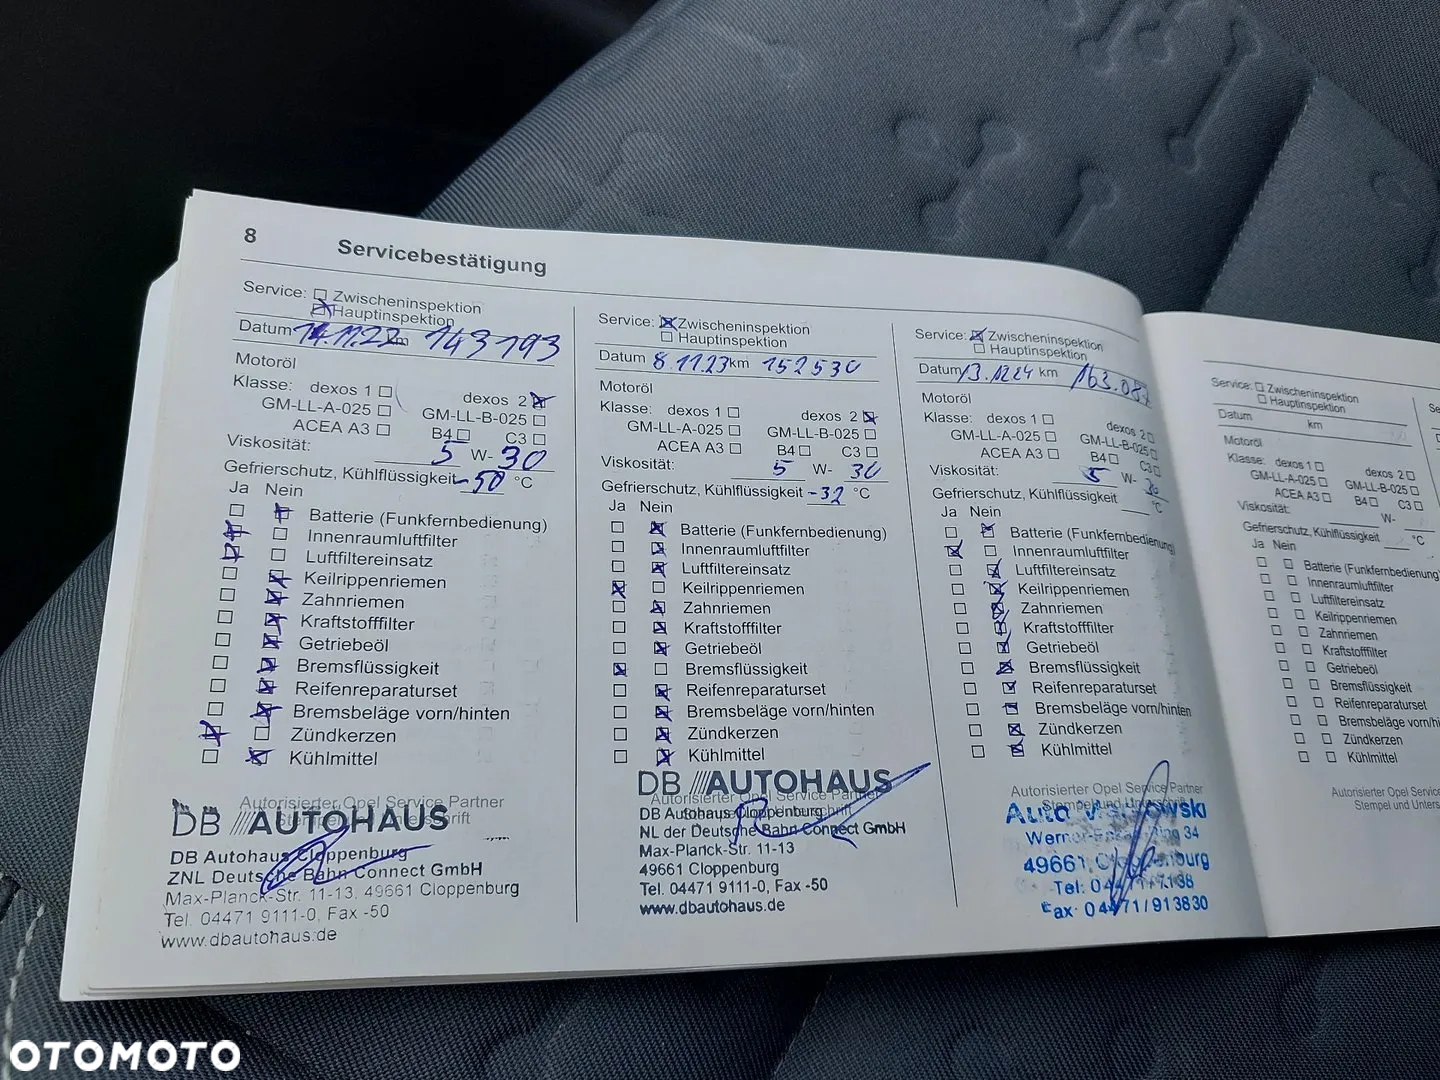 8 Servicebestätigung
Service: Zwischeninspektion
Hauptinspektion
Datum 14.11.22 km 143193
Motoröl
Klasse: dexos 1 dexos 2
GM-LL-A-025 GM-LL-B-025
ACEA A3 B4 C3
Viskosität: 5 W- 30
Gefrierschutz, Kühlflüssigkeit -50 °C
Ja Nein
Batterie (Funkfernbedienung)
Innenraumluftfilter
Luftfiltereinsatz
Keilrippenriemen
Zahnriemen
Kraftstofffilter
Getriebeöl
Bremsflüssigkeit
Reifenreparaturset
Bremsbeläge vorn/hinten
Zündkerzen
Kühlmittel
Autorisierter Opel Service Partner
DB AUTOHAUS
DB Autohaus Cloppenburg
ZNL Deutsche Bahn Connect GmbH
Max-Planck-Str. 11-13, 49661 Cloppenburg
Tel. 04471 9111-0, Fax -50
www.dbautohaus.de
Service: Zwischeninspektion
Hauptinspektion
Datum 8.11.23 km 152530
Motoröl
Klasse: dexos 1 dexos 2
GM-LL-A-025 GM-LL-B-025
ACEA A3 B4 C3
Viskosität: 5 W- 30
Gefrierschutz, Kühlflüssigkeit -32 °C
Ja Nein
Batterie (Funkfernbedienung)
Innenraumluftfilter
Luftfiltereinsatz
Keilrippenriemen
Zahnriemen
Kraftstofffilter
Getriebeöl
Bremsflüssigkeit
Reifenreparaturset
Bremsbeläge vorn/hinten
Zündkerzen
Kühlmittel
DB AUTOHAUS
Autorisierter Opel Service Partner
DB Autohaus Cloppenburg
NL der Deutsche Bahn Connect GmbH
Max-Planck-Str. 11-13
49661 Cloppenburg
Tel. 04471 9111-0, Fax -50
www.dbautohaus.de
Service: Zwischeninspektion
Hauptinspektion
Datum 13.12.24 km 163.087
Motoröl
Klasse: dexos 1 dexos 2
GM-LL-A-025 GM-LL-B-025
ACEA A3 B4 C3
Viskosität: 5 W- 30
Gefrierschutz, Kühlflüssigkeit °C
Ja Nein
Batterie (Funkfernbedienung
Innenraumluftfilter
Luftfiltereinsatz
Keilrippenriemen
Zahnriemen
Kraftstofffilter
Getriebeöl
Bremsflüssigkeit
Reifenreparaturset
Bremsbeläge vorn/hinten
Zündkerzen
Kühlmittel
Autorisierter Opel Service Partner
Auto
34
49661 Cloppenburg
Tel:
Fax: 04471/913830
Service: Zwischeninspektion
Hauptinspektion
Datum km
Motoröl
Klasse: dexos 1 dexos 2
GM-LL-A-025 GM-LL-B-025
ACEA A3 B4 C3
Viskosität: W-
Gefrierschutz, Kühlflüssigkeit °C
Ja Nein
Batterie (Funkfernbedienung)
Innenraumluftfilter
Luftfiltereinsatz
Keilrippenriemen
Zahnriemen
Kraftstofffilter
Getriebeöl
Bremsflüssigkeit
Reifenreparaturset
Bremsbeläge vorn/hi
Zündkerzen
Kühlmittel
Autorisierter Opel Service
Stempel und Unters
Se
OTOMOTO